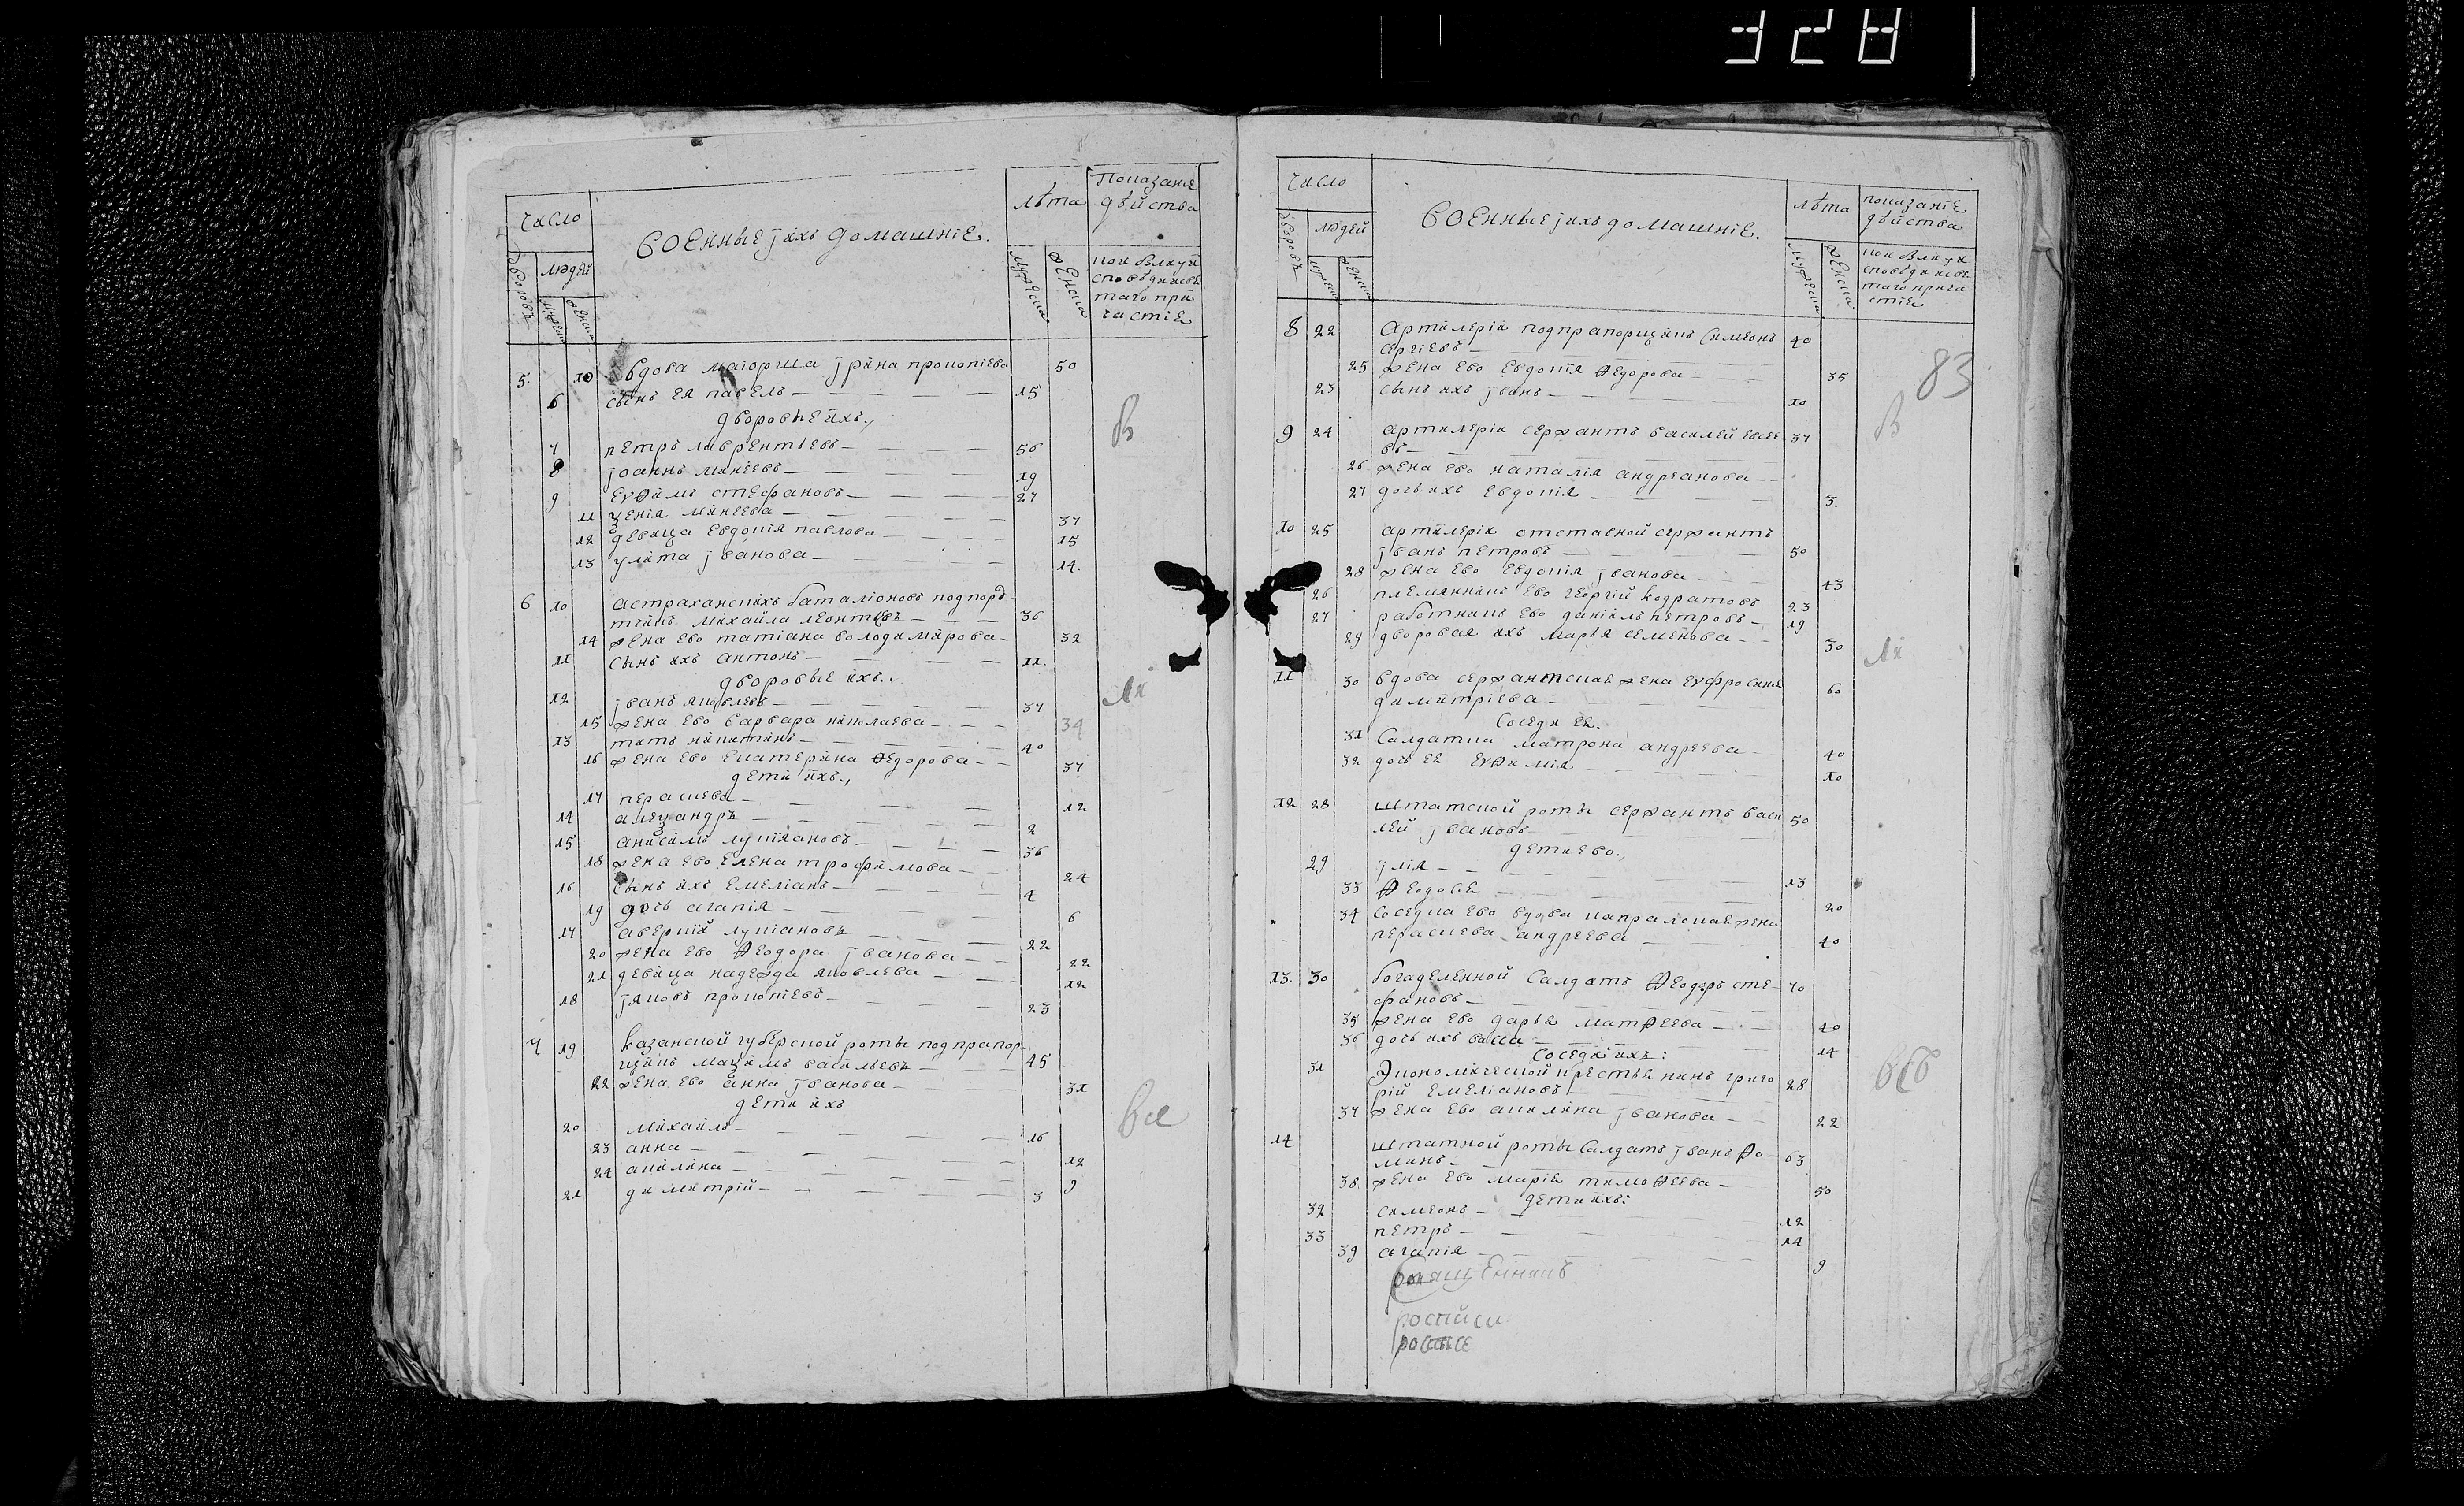 328
число
военные јихъ домашнїе.
лѣта
показание
дѣйства
дворовъ
людей
мужеска
женска
мужеска
женска
кои были у и
споведи и св
таго при
частїе
5. 10 вдова маїорша јрина прокопїева 50
6 сынъ ея павелъ 15
дворовые ихъ.
В
7 петръ лаврентьевъ 50
8 јоаннъ минеевъ 19
9 еѵѳимъ стефановъ 27
11 ѯенїя минеева 37
12 девица евдокїя павлова 15
13 улита јванова 14.
6 10 астраханскихъ баталїоновъ подпорт
чикъ михайла леонтьевъ 36
14 жена ево татїана володимирова 32
11 сынъ ихъ антонъ 11.
дворовые ихъ.
Ли
12 јванъ яковлевъ 37
15 жена ево варвара николаева 34
13 титъ никитинъ 40
16 жена ево екатерина ѳедорова 37
дети ихъ.
17 парасиева 12
14 алеѯандръ 2
15 анисимъ лукїановъ 36
18 жена ево елена трофимова 24
16 сынъ ихъ емелїанъ 4
19 дочь агапїя 6
17 аверкїй лукїановъ 22
20 жена ево ѳеодора јванова 22
21 девица надежда яковлева 12
18 јяковъ прокопїевъ 23
7 19 казанской губернской роты подпрапор
щикъ маѯимъ васильевъ 45
22 жена ево анна јванова 31
дети ихъ
все
20 михаилъ 16
23 анна 12
24 акилина 9
21 димитрїй 3
число
военные јихъ домашнїе.
лѣта
показанїе
дѣйства
дворовъ
людей
мужеска
женска
мужеска
женска
кои были у и
споведи и св
таго прича
стїе
83
8 22 артилерїи подпрапорщикъ симеонъ 40
сергїевъ
25 жена ево евдокїя ѳедорова 35
23 сынъ ихъ јванъ 10
В
9 24 артилерїи сержантъ василей евсее 37
въ
26 жена ево наталїя андреанова
27 дочь ихъ евдокїя 3.
10 25 артилерїи отставной сержантъ
јванъ петровъ 50
28 жена ево евдокїя јванова 43
26 племянникъ ево георгїй кодратовъ 23
27 работникъ ево данїилъ петровъ 19
29 дворовая ихъ марья семенова 30
Ли
11 30 вдова сержантская жена еѵфросинїя 60
димитрїева
соседи ея.
31 салдатка матрона андреева 40
32 дочь ея еѵѳимїя 10
12 28 штатской роты сержантъ васи 50
лей јвановъ
дети ево.
29 јлїя 13
33 ѳеодосїя 20
34 соседка ево вдова капральская жена
парасиева андреева 40
13. 30 богаделенной салдатъ ѳеодоръ сте 70
фановъ
35 жена ево дарья матѳеева 40
36 дочь ихъ васса 14
соседи ихъ:
31 экономической крестьянинъ григо 28
рїй емелїановъ
все
37 жена ево акилина јванова 22
14 штатной роты салдатъ јванъ ѳо 63
минъ
38. жена ево марїя тимоѳеева 50
дети ихъ:
32 симеонъ 12
33 петръ 14
39 агапїя 9
священникъ
росписи